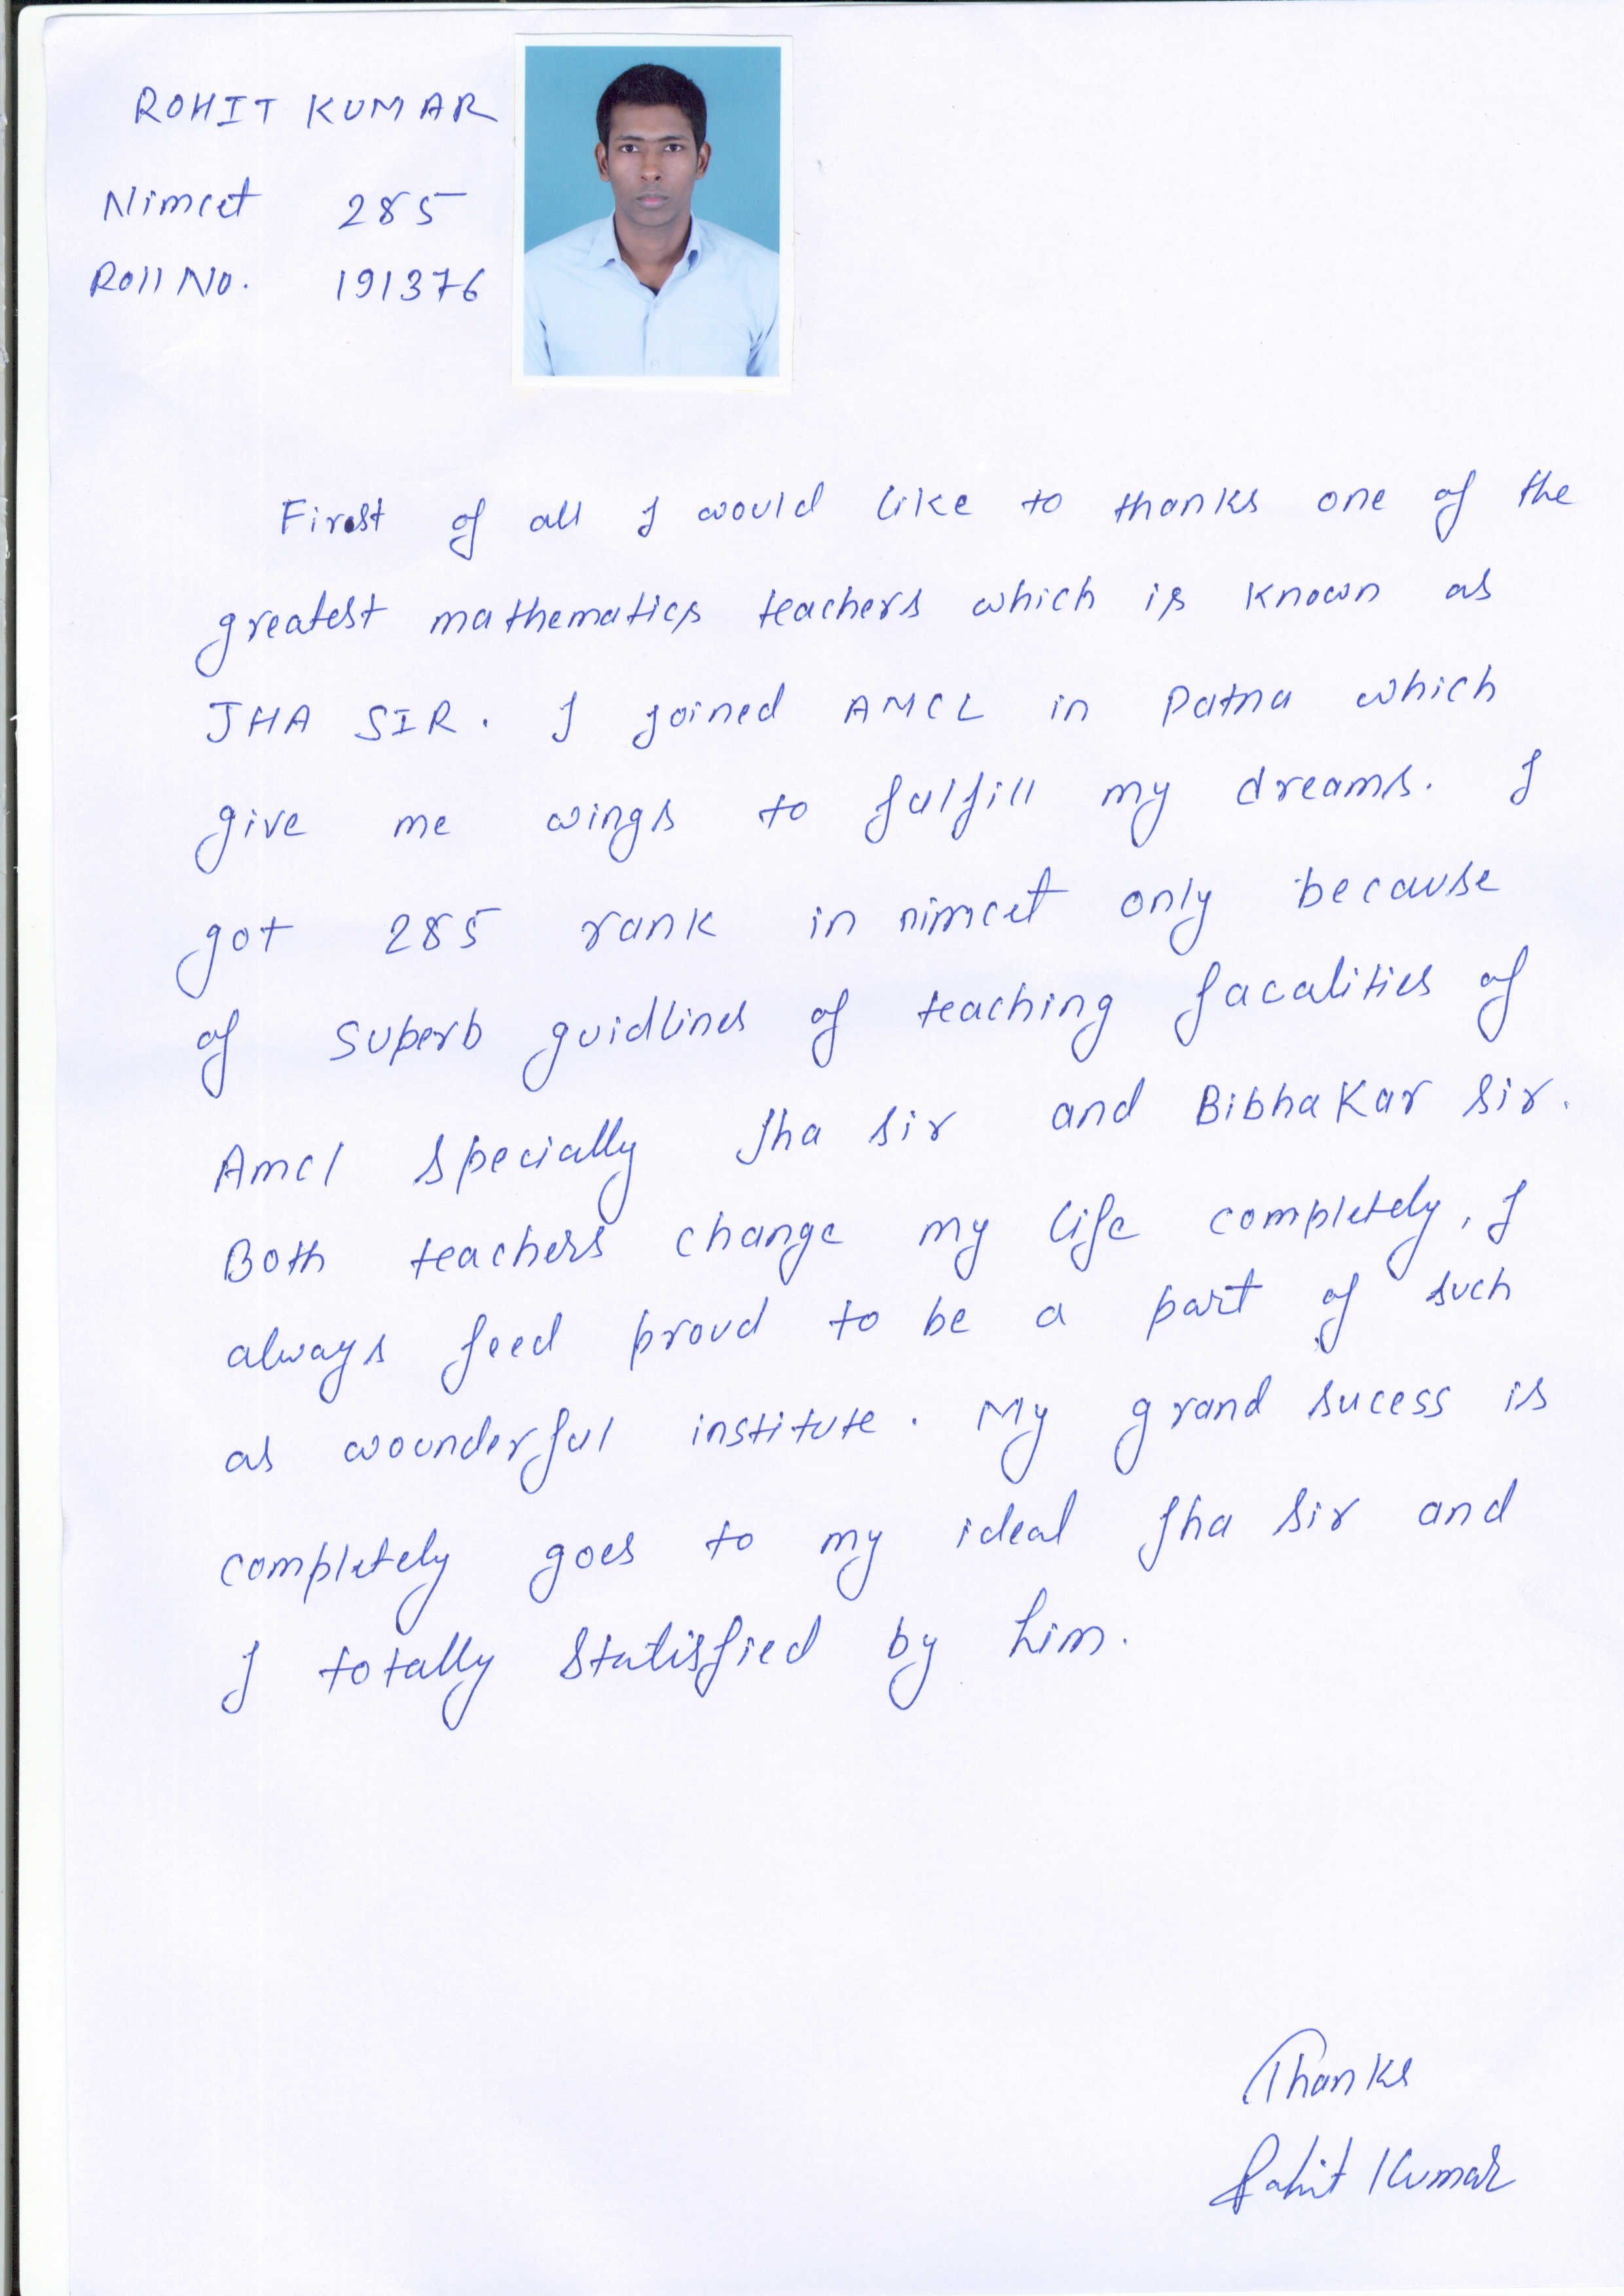 ROHIT KUMAR
Nimcet 285
Roll No. 191376
First of all I would like to thanks one of the
greatest mathematics teachers which is known as
JHA SIR. I joined AMCL in Patna which
give me wings to fulfill my dreams. I
got 285 rank in nimcet only because
of superb guidlines of teaching facalities of
Amcl specially Jha sir and Bibhakar sir.
Both teachers change my life completely, I
always feed proud to be a part of such
as wounderful institute. My grand sucess is
completely goes to my ideal Jha sir and
I totally statisfied by him.
Thanks
Rohit Kumar